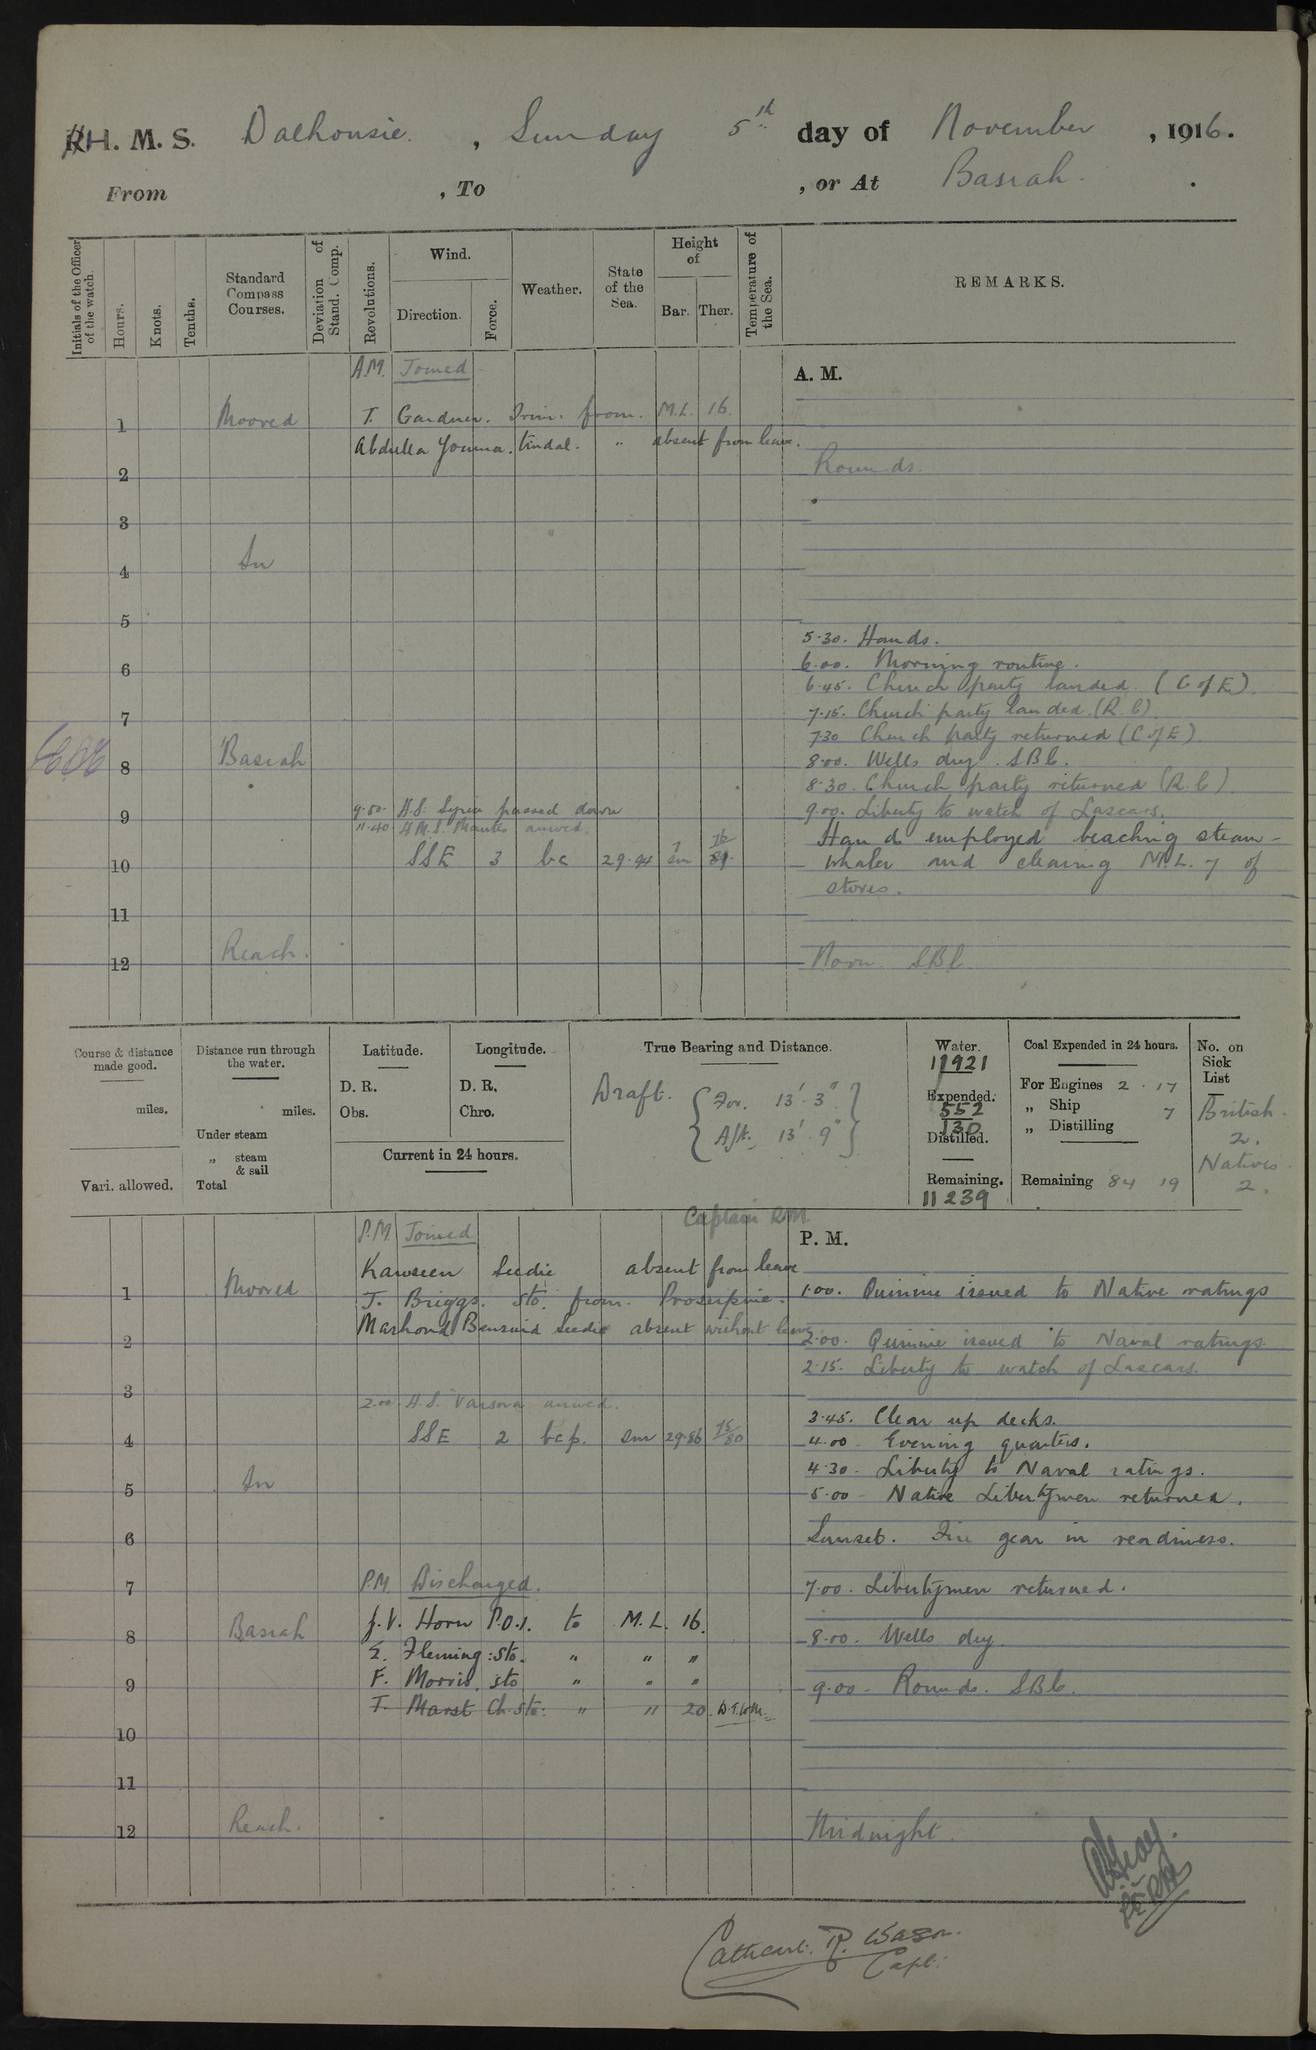 H. M. S. Dalhousie. , Sunday 5th day of November , 1916.
From , To , or At Basrah.
Initials of the Officer of the watch.
Hours.
Knots.
Tenths.
Standard Compass Courses.
Deviation of Stand. Comp.
Revolutions.
Wind.
Direction.
Force.
Weather.
State of the Sea.
Height of
Bar. Ther.
Temperature of the Sea.
REMARKS.
A.M. Joined
A. M.
1 Moored T. Gardner. Trim. from. M.L. 16.
Abdulla Youma. tindal. " absent from leave.
2 Rounds.
3
4 In
5
5.30. Hands.
6 6.00. Morning routine.
6.45. Church party landed. (C of E).
7 7.15. Church party landed. (R.C)
7.30 Church party returned (C of E)
8 Basrah 8.00. Wells dry. SBC.
8.30. Church party returned (R.C)
9 9.50. H.S. Syria passed down 9.00. Liberty to watch of Lascars.
11.40 H.M.S. Mantis arrived. Hands employed beaching steam-
10 SSE 3 bc 29.94 sm 76/81 whaler and clearing M.L. 7 of
stores.
11
12 Reach. Noon SBC
Course & distance made good.
miles.
Vari. allowed.
Distance run through the water.
miles.
Under steam
" steam & sail
Total
Latitude.
D. R.
Obs.
Longitude.
D. R.
Chro.
Current in 24 hours.
True Bearing and Distance.
Draft. { For. 13' 3" }
{ Aft. 13' 9" }
Water.
11921
Expended.
552
130
Distilled.
Remaining.
11239
Coal Expended in 24 hours.
For Engines 2 . 17
" Ship 7
" Distilling
Remaining 84 19
No. on Sick List
British.
2.
Natives.
2.
Captain RM.
P.M. Joined
P. M.
Kawseen Seedie absent from leave
1 Moored T. Briggs. Sto. from. Proserpine. 1.00. Quinine issued to Native ratings
Seedie absent without leave
2 2.00. Quinine issued to Naval ratings
2.15. Liberty to watch of Lascars.
3 2.00. H.S. Varsova arrived.
3.45. Clear up decks.
4 SSE 2 bcp. sm 29.86 75/80 4.00 Evening quarters.
4.30. Liberty to Naval ratings.
5 In 5.00 - Native Libertymen returned.
6 Sunset. Fire gear in readiness.
7 P.M. Discharged. 7.00. Libertymen returned.
J. V. Horn P.O.1. to M.L. 16.
8 Basrah 8.00. Wells dry.
E. Fleming: Sto. " " "
9 F. Morris. sto " " " 9.00 - Rounds. SBC.
T. Marst Ch. Sto: " " 20.
10
11
12 Reach. Midnight.
Cathcart. R. Wason.
Capt: